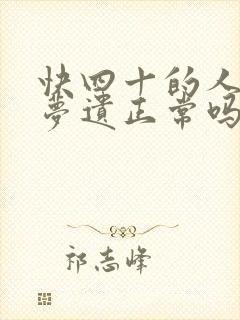 快四十的人
梦遗正常吗
祁志峰